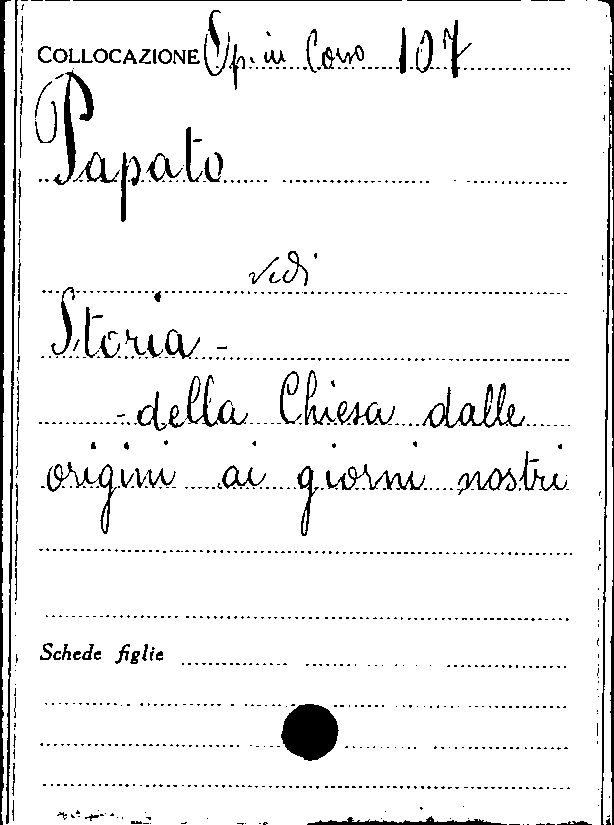 COLLOCAZIONE Op. in Corso 107
Papato
vedi
Storia -
- della Chiesa dalle
origini ai giorni nostri
Schede figlie